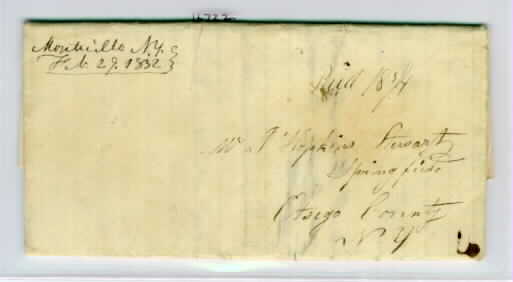 Monticello N.Y.
Feb. 29. 1832
Paid 18 3/4
Mr Hopkins Stewart
Springfield
Otsego County
N Y